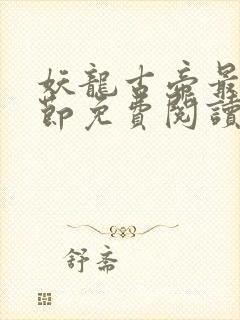 妖龍古帝最
節免費閱讀
舒斋